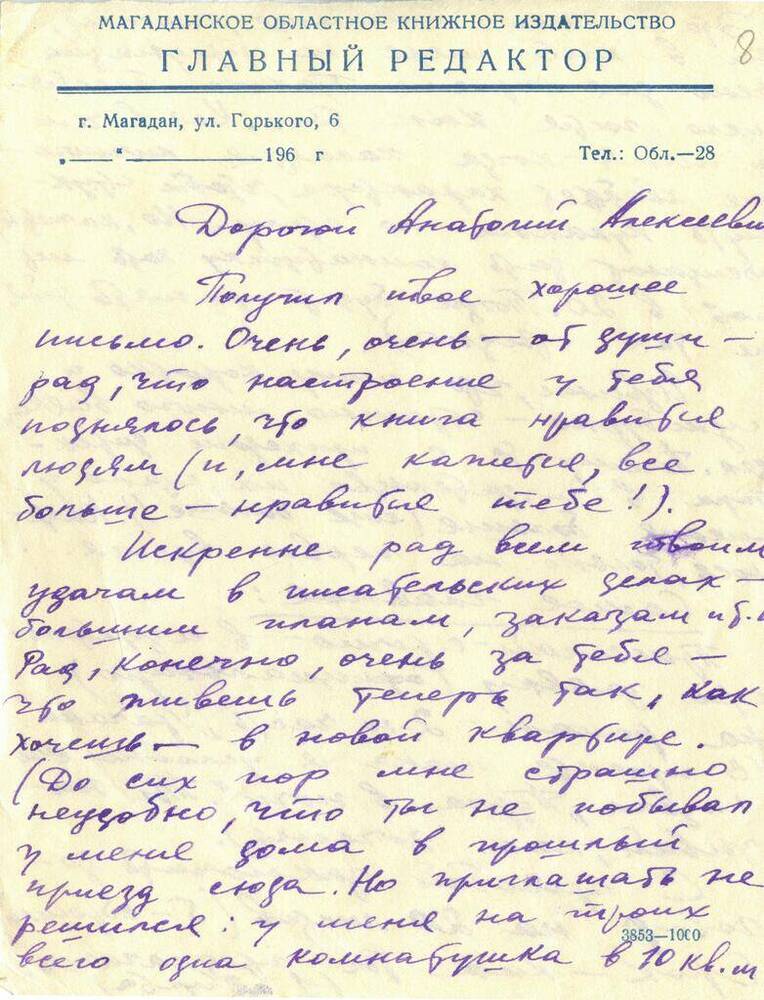 МАГАДАНСКОЕ ОБЛАСТНОЕ КНИЖНОЕ ИЗДАТЕЛЬСТВО
ГЛАВНЫЙ РЕДАКТОР
8
г. Магадан, ул. Горького, 6
„——“————————196 г
Тел.: Обл.—28
Дорогой Анатолий Алексеевич
Получил твое хорошее
письмо. Очень, очень — от души —
рад, что настроение у тебя
поднялось, что книга нравится
людям (и, мне кажется, все
больше — нравится тебе!).
Искренне рад всем твоим
удачам в писательских делах —
большим планам, заказам и т.
Рад, конечно, очень за тебя —
что живешь теперь так, как
хочешь — в новой квартире.
(До сих пор мне страшно
неудобно, что ты не побывал
у меня дома в прошлый
приезд сюда. Но приглашать не
решился: у меня на троих
3853—1000
всего одна комнатушка в 10 кв. м